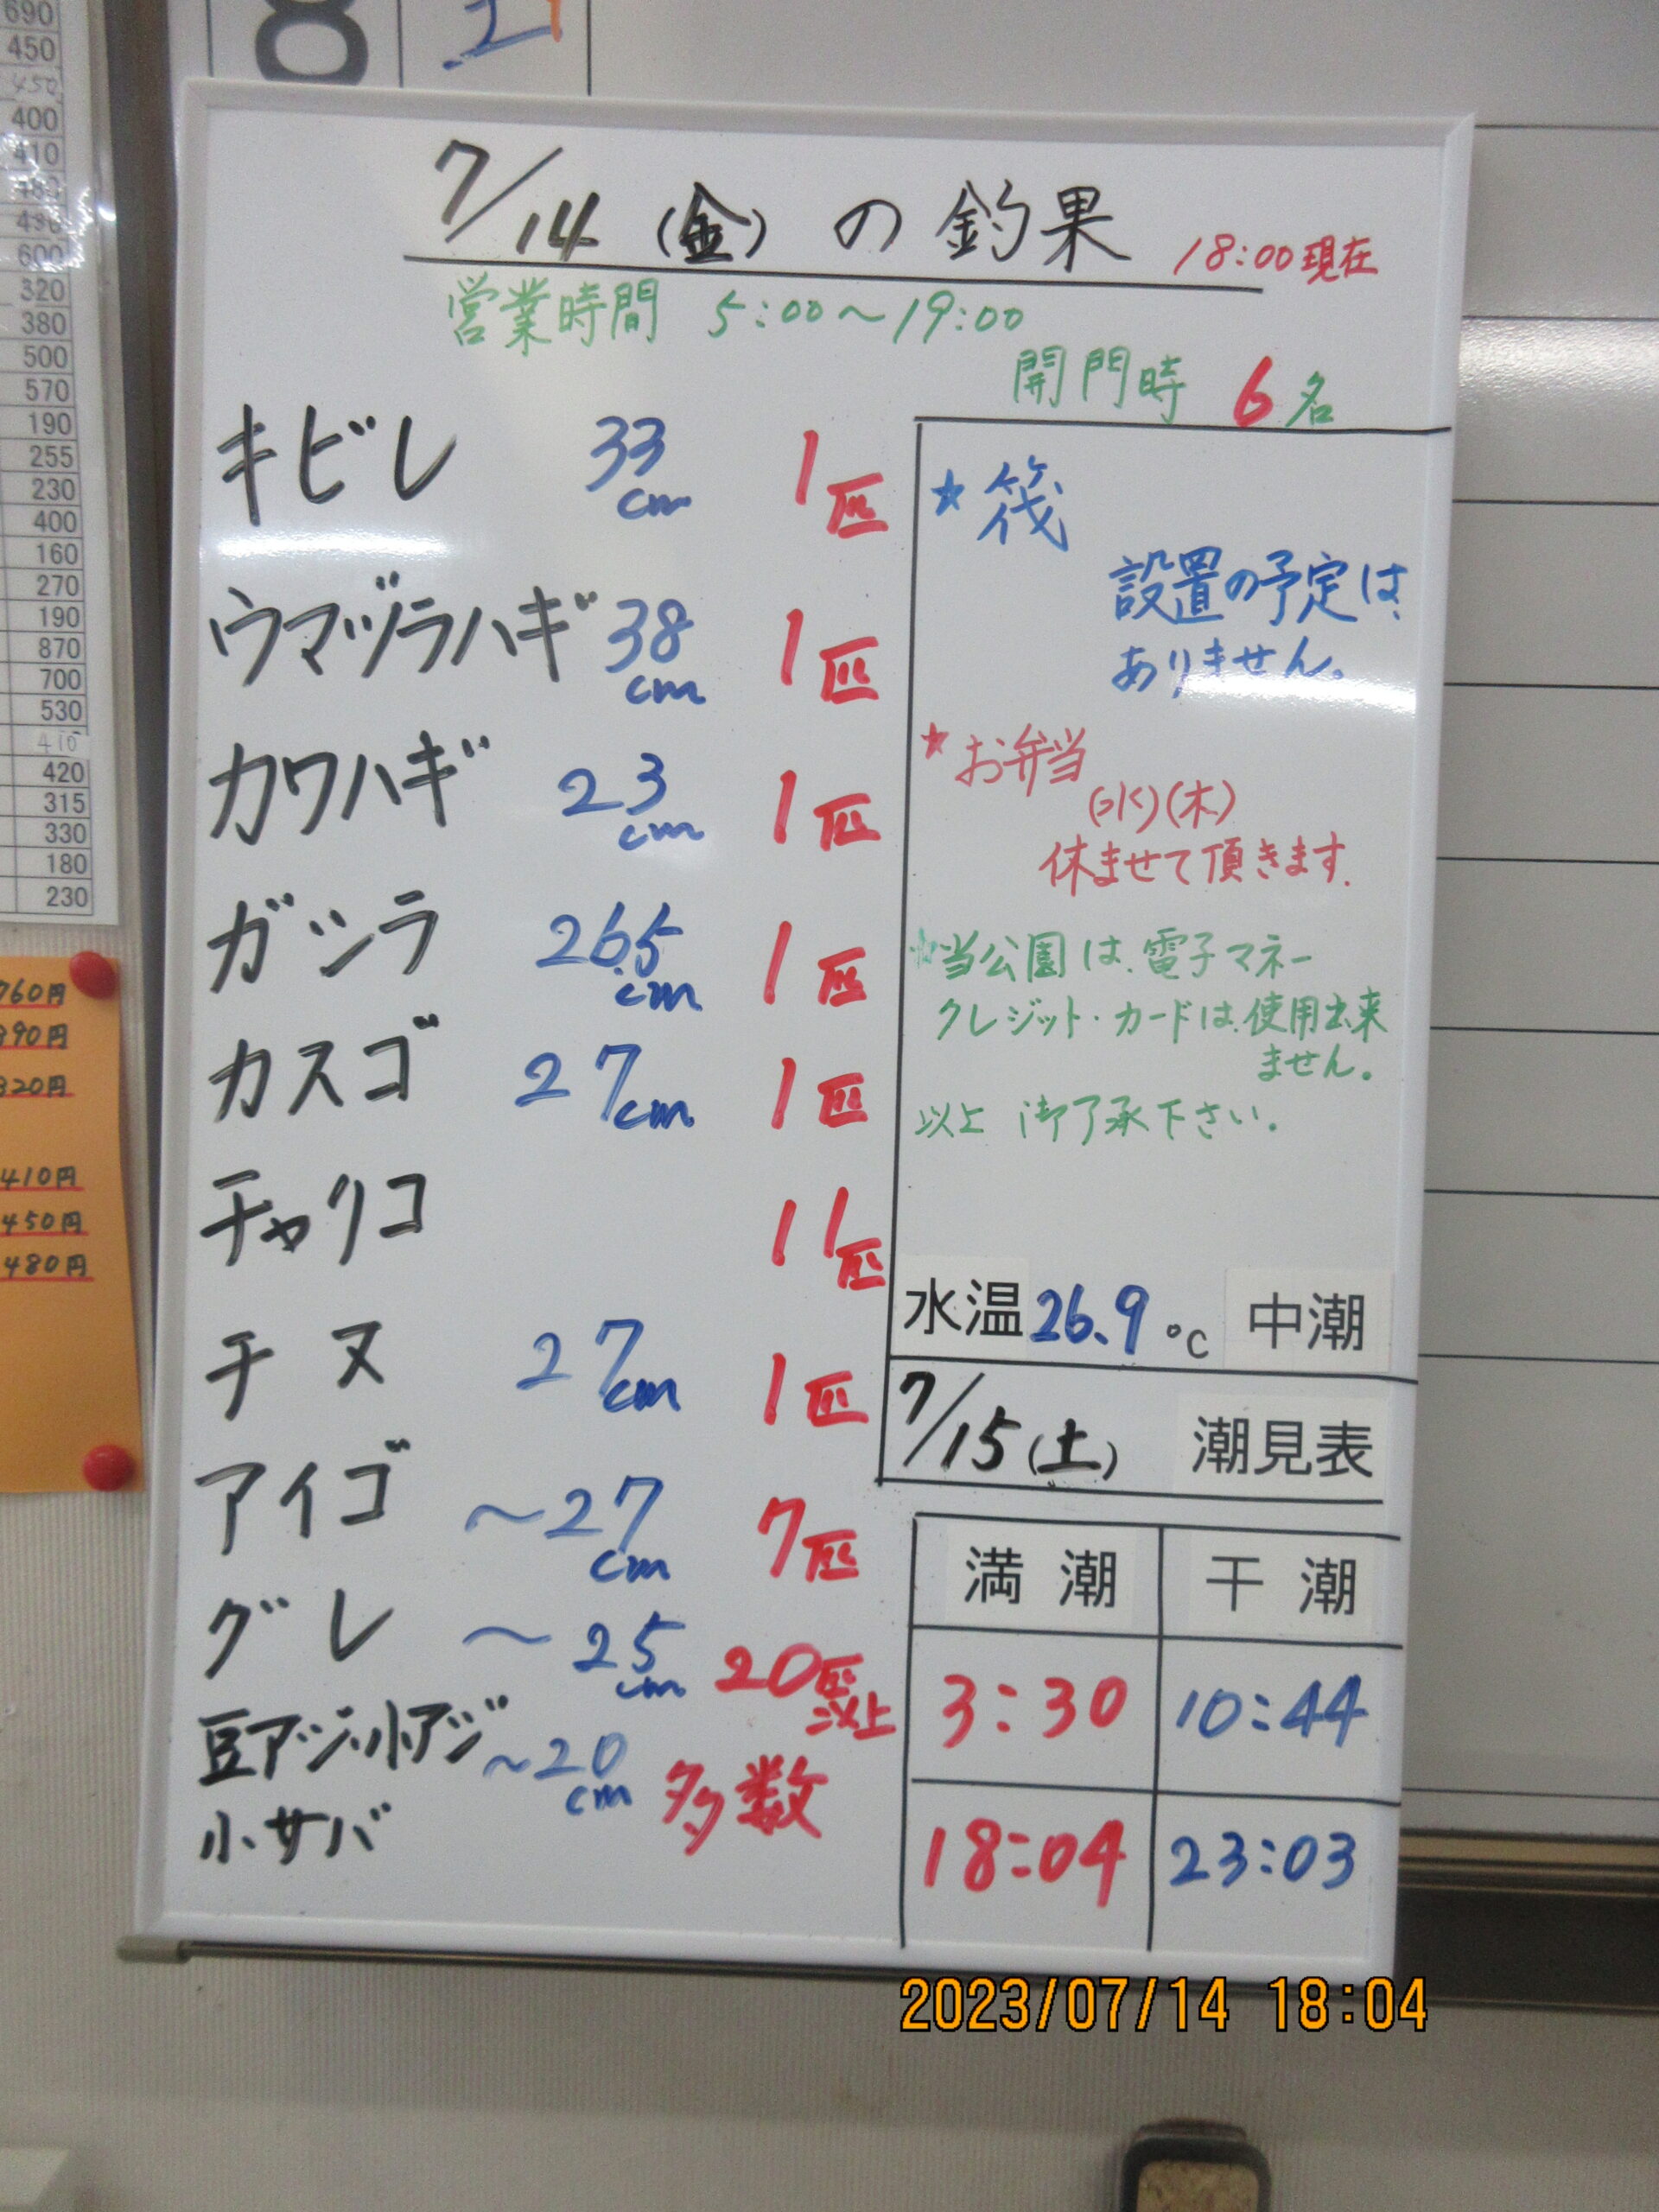 690
450
450
400
410
480
490
600
320
380
500
570
190
255
230
400
160
270
190
870
700
530
410
420
315
330
180
230
760円
390円
320円
410円
450円
480円
7/14 (金) の 釣果 18:00現在
営業時間 5:00~19:00
開門時 6名
キビレ 33cm 1匹
ウマヅラハギ 38cm 1匹
カワハギ 23cm 1匹
ガシラ 26.5cm 1匹
カスゴ 27cm 1匹
チャリコ 11匹
チヌ 27cm 1匹
アイゴ ~27cm 7匹
グレ ~25cm 20匹以上
豆アジ・小アジ ~20cm 多数
小サバ
★筏
設置の予定は
ありません。
★お弁当
(水)(木)
休ませて頂きます.
☆当公園は、電子マネー
クレジット・カードは、使用出来
ません。
以上 御了承下さい。
水温 26.9℃ 中潮
7/15(土) 潮見表
満潮 干潮
3:30 10:44
18:04 23:03
2023/07/14 18:04